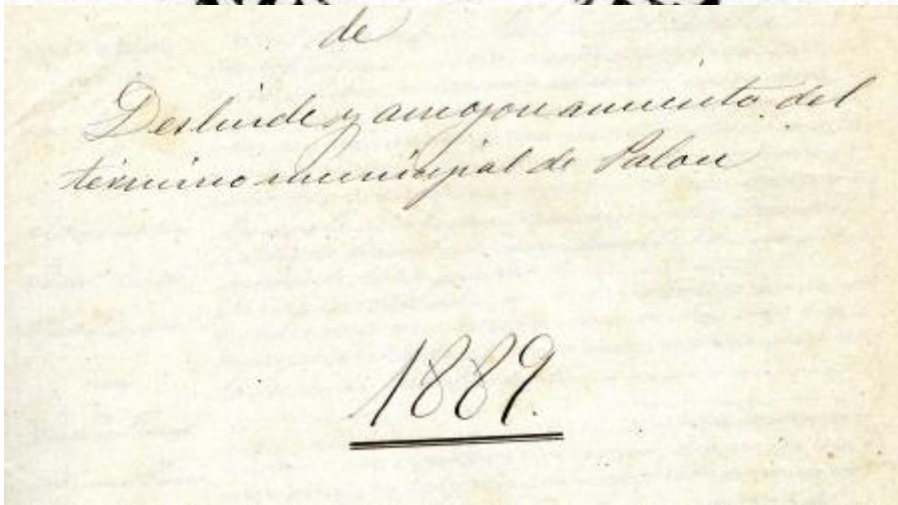 de
Deslinde y amojonamiento del
término municipal de Palou
1889.